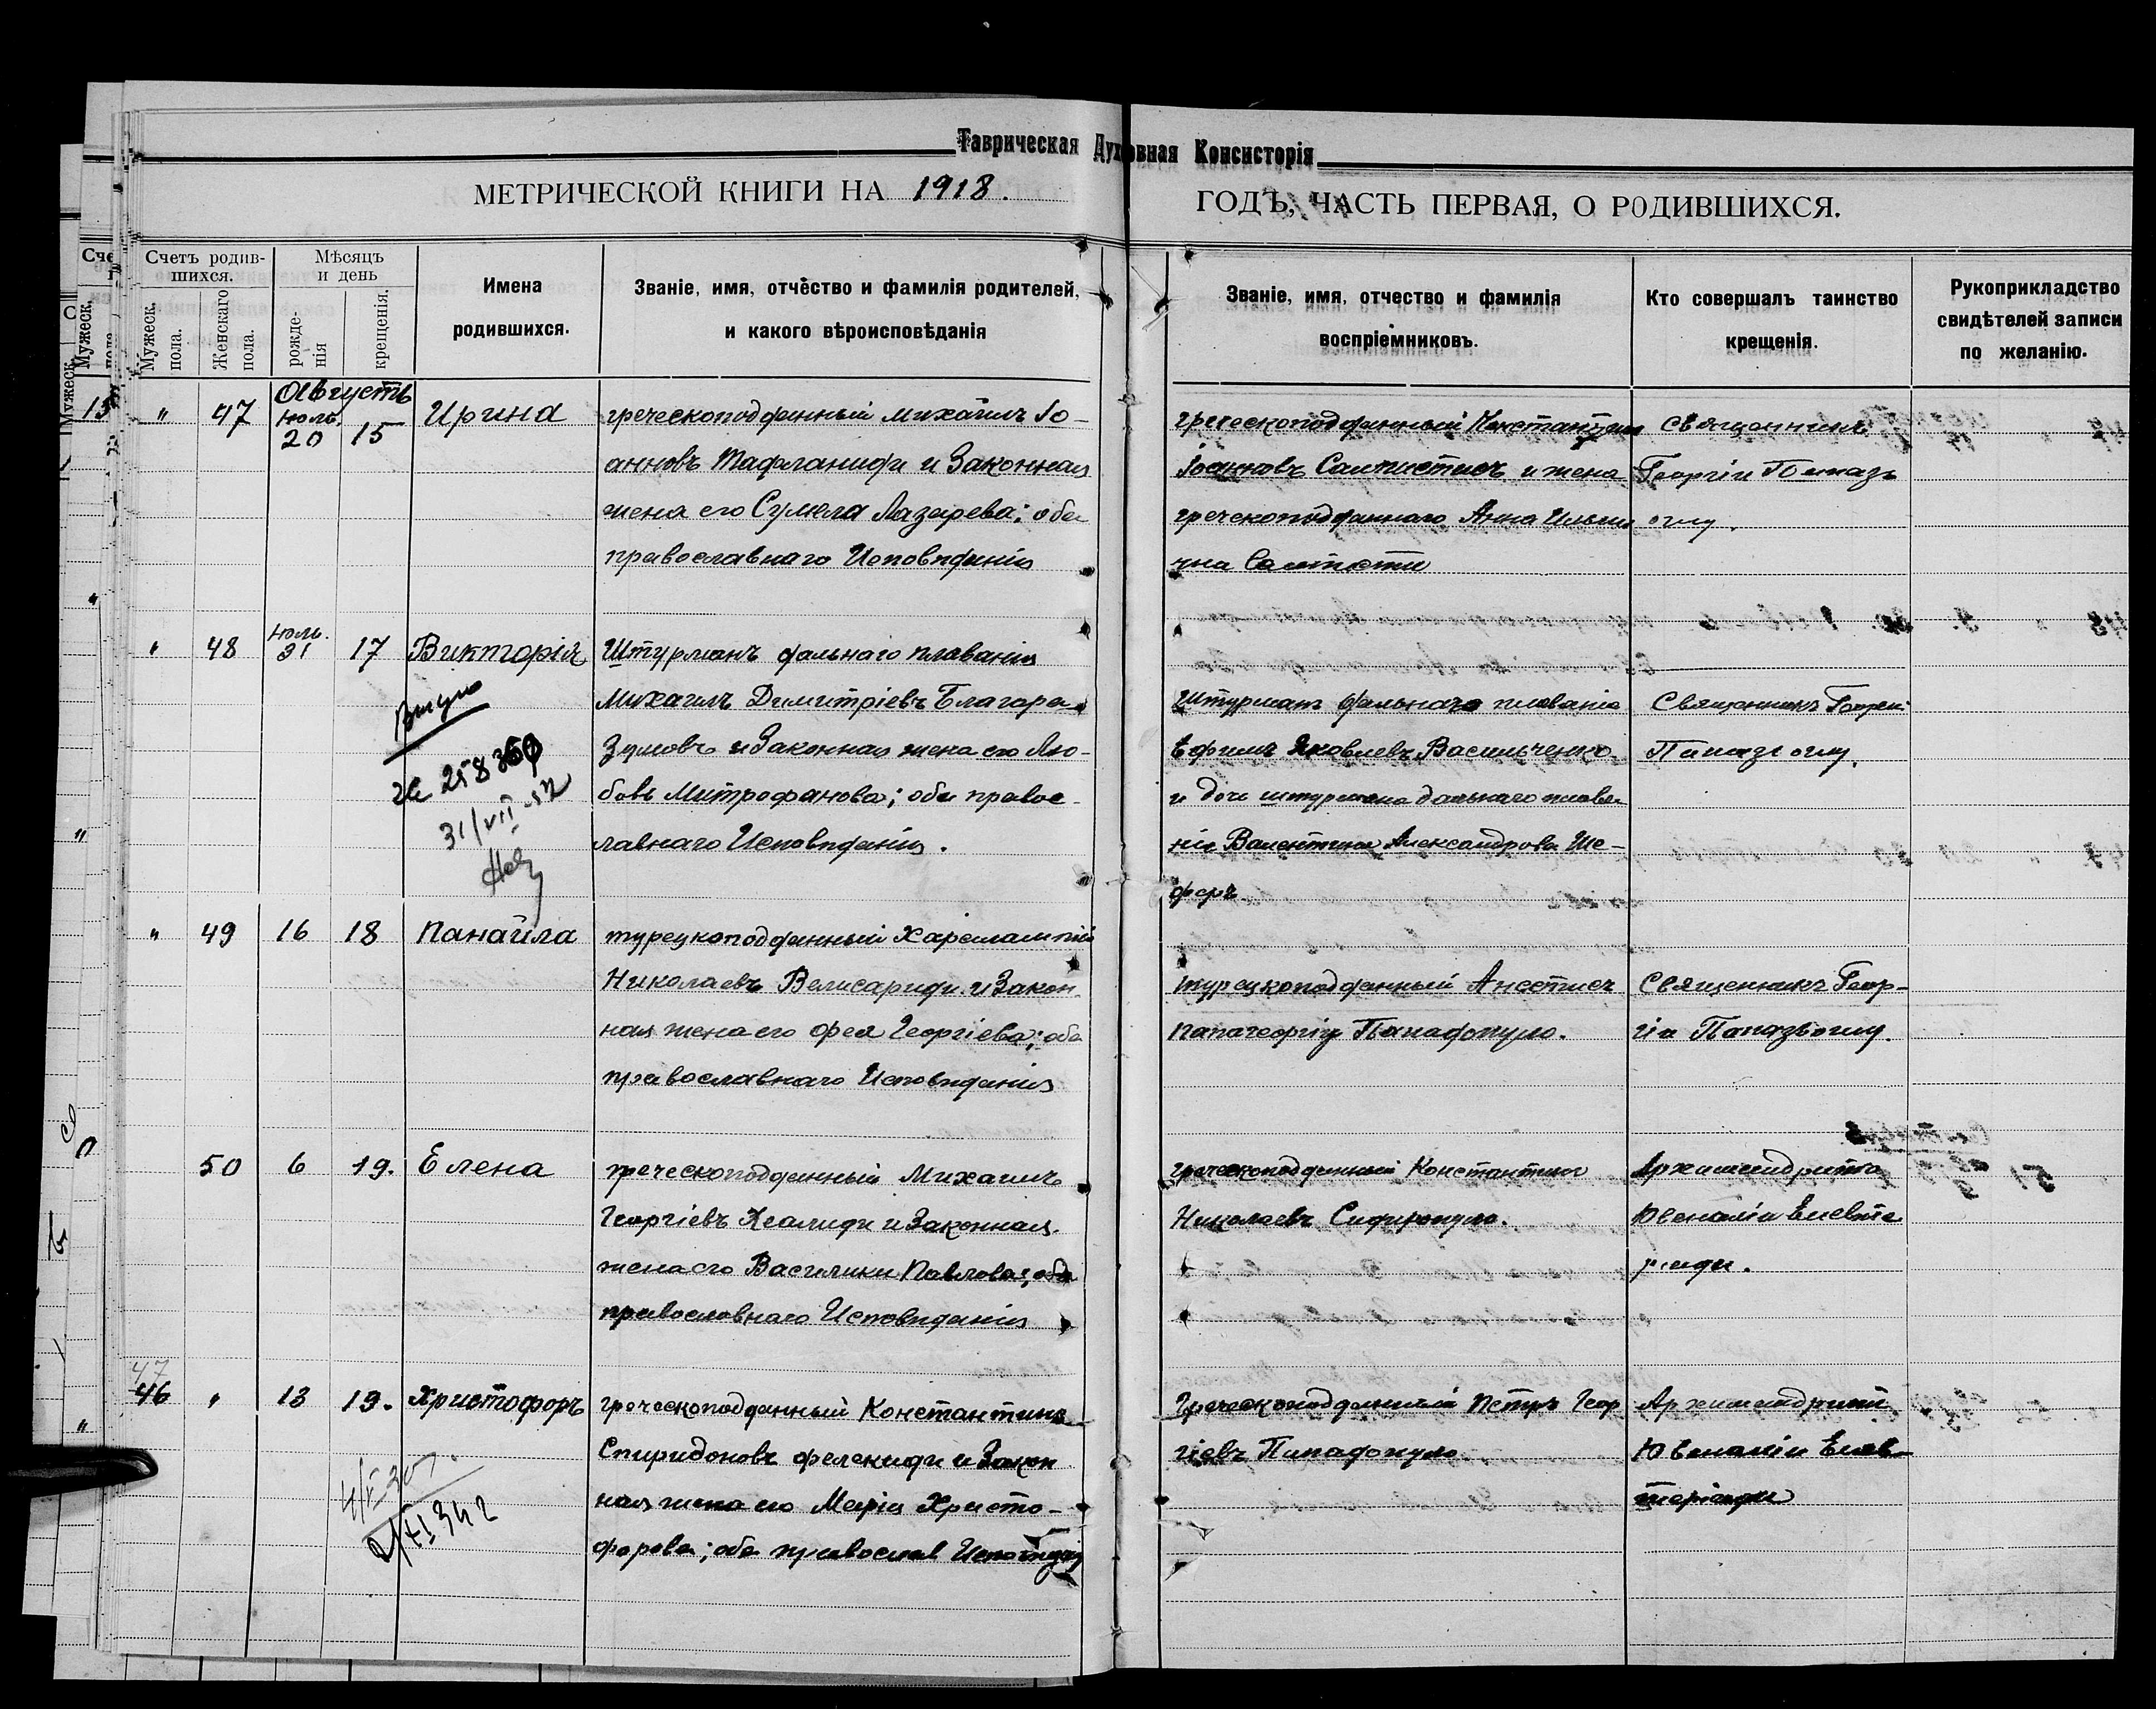 Таврическая Духовная Консисторія
МЕТРИЧЕСКОЙ КНИГИ НА 1918.
ГОДЪ, ЧАСТЬ ПЕРВАЯ, О РОДИВШИХСЯ.
Счетъ родив-
шихся.
Мужеск. пола.
Женскаго пола.
Мѣсяцъ
и день
рожде-
нія
крещенія.
Имена
родившихся.
Званіе, имя, отчество и фамилія родителей,
и какого вѣроисповѣданія
Званіе, имя, отчество и фамилія
воспріемниковъ.
Кто совершалъ таинство
крещенія.
Рукоприкладство
свидѣтелей записи
по желанію.
Августъ
" 47 Июль. 20 15 Ирина
греческоподданный Михаилъ Іо-
анновъ Тафланиди и Законная
жена его Сумела Лазарева; оба
православнаго Исповѣданія
греческоподданный Константинъ
Іоанновъ и жена
греческоподданнаго Анна Ильини
чна
Священникъ
Георгій Папазъ
оглу.
" 48 Июль. 31 17 Викторія
Штурманъ дальнаго плаванія
Михаилъ Димитріевъ Благора-
зумовъ и Законная жена его Лю-
бовь Митрофанова; оба правос-
лавнаго Исповѣданія.
31/VII
Штурманъ дальнаго плаванія
Ефимъ Яковлевъ Васильченко
и дочь штурмана дальнаго плава-
нія Валентина Александрова Ше-
феръ
Священникъ Георгій
Папазъ оглу.
" 49 16 18 Панаила
турецкоподданный Харалампій
Николаевъ Велисариди и Закон-
ная жена его Георгіева; оба
православнаго Исповѣданія
турецкоподданный Анестисъ
Папагеоргіу Панафопуло.
Священникъ Геор-
гій Папазъоглу.
50 6 19. Елена
греческоподданный Михаилъ
Георгіевъ и Законная
жена его Василики Павлова; оба
православнаго Исповѣданія
греческоподданный Константинъ
Николаевъ Сидиропуло.
Архимандритъ
Ювеналій Елевте
ріади.
47
46 " 13 19. Христофоръ
греческоподданный Константинъ
Спиридоновъ и Закон
ная жена его Марія Христо-
форова; оба православ
Греческоподданный Петръ Геор
гіевъ
Архимандритъ
Ювеналій Елев-
теріади